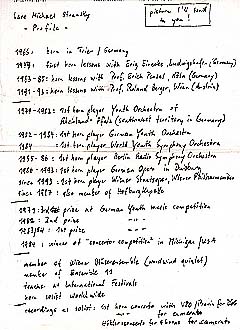 Lars Michael Stransky
- Profile -
picture I'll send to you!
1966: born in Trier / Germany
1979: first horn lessons with Erig Ludwigshafen (Germany)
1983-85: horn lessons with Prof. Erich Penzel, Köln (Germany)
1991-92: horn lessons with Prof. Roland Berger, Wien (Austria)
1979-1982: 1st horn player Youth Orchestra of
Rheinland-Pfalz (southwest territory in Germany)
1982-1984: 1st horn player German Youth Orchestra
1984: 1st horn player World Youth Symphony Orchestra
1985-86: 1st horn player Berlin Radio Symphony Orchestra
1986-1993: 1st horn player German Opera in Duisburg
since 1993: 1st horn player Wiener Staatsoper, Wiener Philharmoniker
since 1987: also member of Hofmusikkapelle
1979: prize at German Youth music competition
1982: 2nd prize -"-
1983/84: 1st prize -"-
1984: winner of "concerto competition" in Michigan / USA
member of Wiener Bläserensemble (woodwind quintet)
member of Ensemble 11
teacher at International Festivals
horn soloist worldwide
recordings as soloist: 1st horn concerto with VPO
for camerata
for 4 horns for camerata